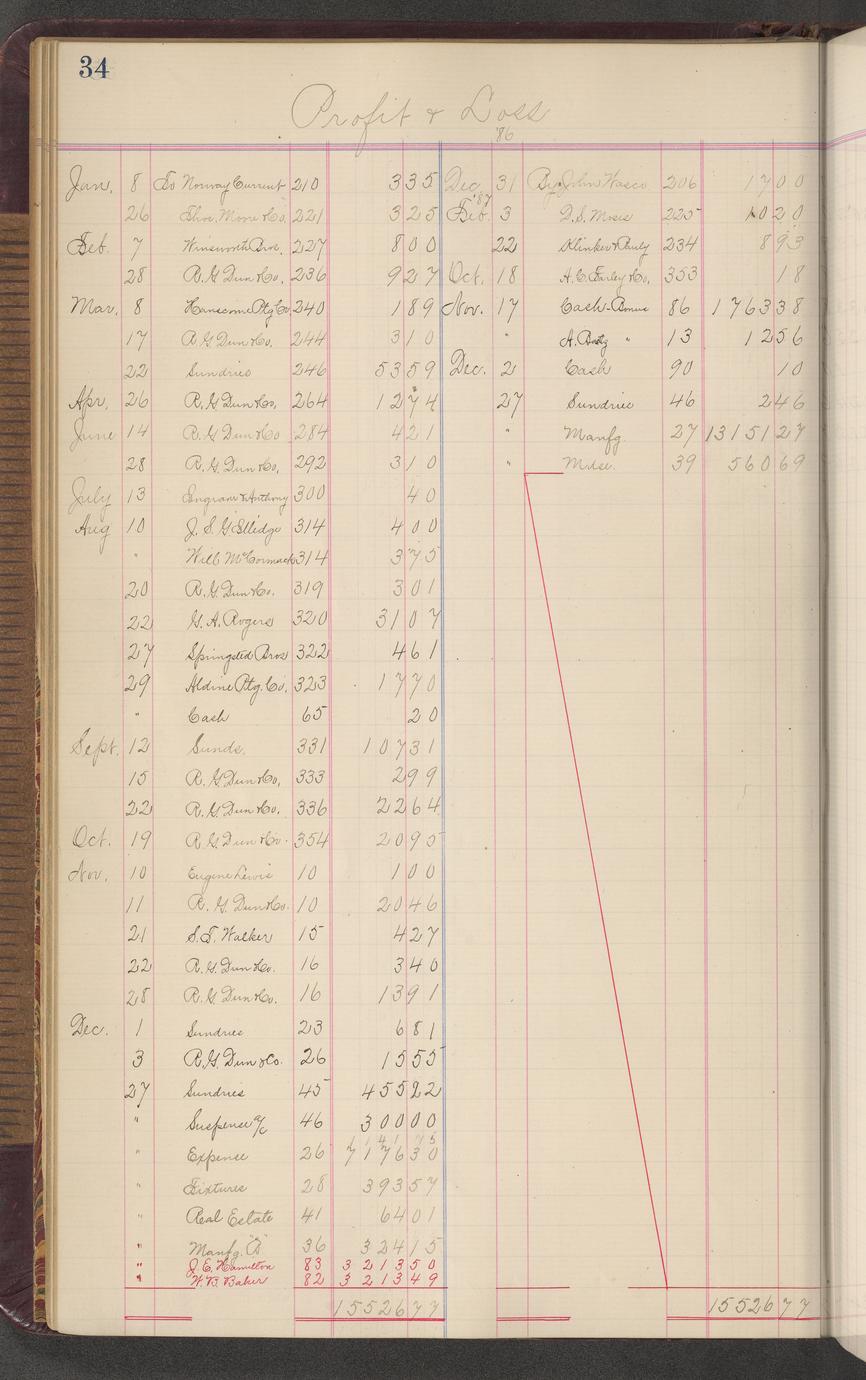 34
Profit & Loss
'86
Jan. 8 To Norway Current 210 3 35 Dec. 31 By John Wasco 206 17 00
'87
26 Thos. Moore & Co. 221 3 25 Feb. 3 D. S. Moses 225 10 20
Feb. 7 Bros. 227 8 00 22 Klinker & Pauly 234 8 93
28 R. G. Dun & Co. 236 9 27 Oct. 18 A. C. Earley & Co. 353 18
Mar. 8 Hanscome Ptg Co 240 1 89 Nov. 17 Cash - Bonus 86 1763 38
17 R G Dun & Co. 244 3 10 " A. " 13 12 56
22 Sundries 246 53 59 Dec. 2 Cash 90 10
Apr. 26 R. G. Dun & Co. 264 12 74 27 Sundries 46 2 46
June 14 R. G. Dun & Co 284 4 21 " Manfg. 27 13151 27
28 R. G. Dun & Co. 292 3 10 " Mdse. 39 560 69
July 13 Ingram & Anthony 300 40
Aug 10 J. S. G. Elledge 314 4 00
" Will McCormack 314 3 75
20 R. G. Dun & Co. 319 3 01
22 G. A. Rogers 320 31 07
27 Springsted Bros 322 4 61
29 Aldine Ptg. Co. 323 17 70
" Cash 65 20
Sept. 12 Sunds. 331 107 31
15 R. G. Dun & Co. 333 2 99
22 R. G. Dun & Co. 336 22 64
Oct. 19 R. G. Dun & Co. 354 20 95
Nov. 10 Eugene Lewis 10 1 00
11 R. G. Dun & Co. 10 20 46
21 S. T. Walker 15 4 27
22 R. G. Dun & Co. 16 3 40
28 R. G. Dun & Co. 16 13 91
Dec. 1 Sundries 23 6 81
3 R. G. Dun & Co. 26 15 55
27 Sundries 45 455 22
" Suspense a/c 46 300 00
" Expense 26 7176 30
" Fixtures 28 393 57
" Real Estate 41 64 01
" Manfg. "A" 36 324 15
" J. E. Hamilton 83 3213 50
" W. B. Baker 82 3213 49
15526 77 15526 77